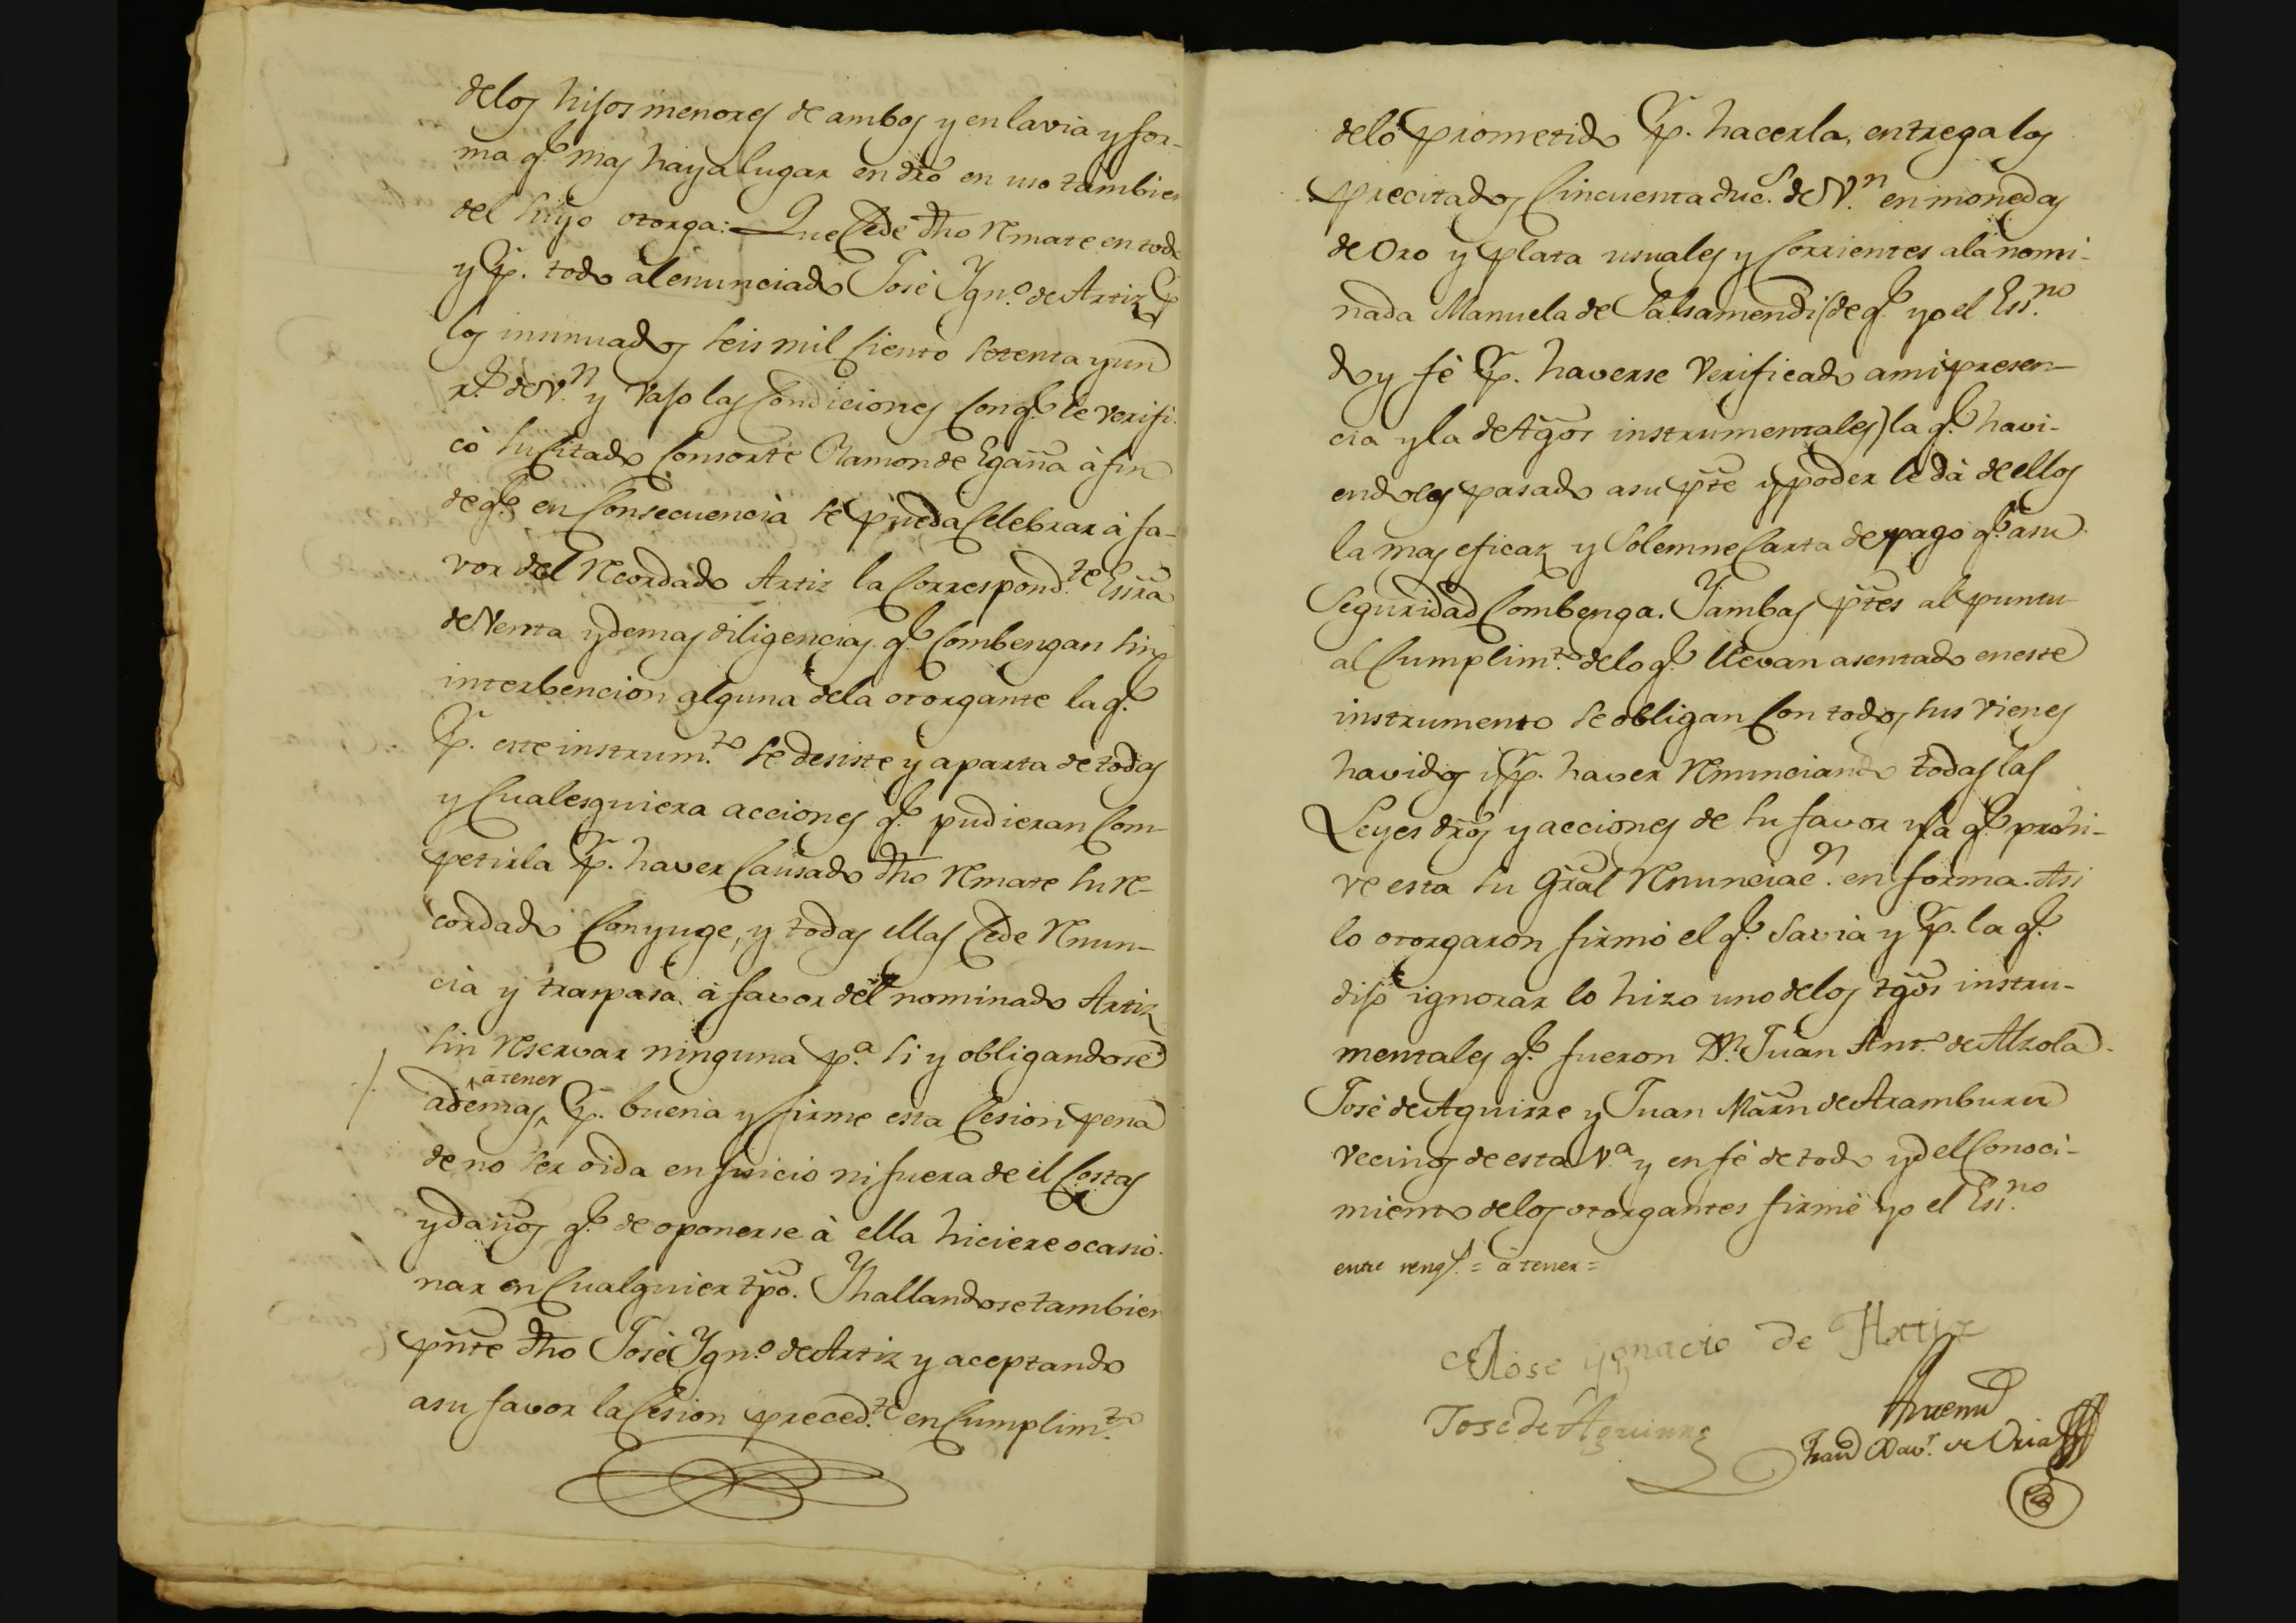 delos hijos menores de ambos y en la via y for-
ma q.e mas haya lugar en dro en uso tambien
del suyo otorga: Que Cede dho Remate en todo
y p.r todo al enunciado José Ygn.o de Artiz p.r
los insinuados seis mil Ciento setenta y un
r.s de V.n y vajo las Condiciones Con q.e le verifi-
có su Citado Consorte Ramon de Egaña à fin
de q.e en Consecuencia se pueda Celebrar à fa-
vor del Recordado Artiz la Correspond.te Essra
de Venta y demas diligencias q.e Combengan sin
interbencion alguna dela otorgante la q.e
p.r este instrum.to se desiste y aparta de todas
y Cualesquiera acciones q.e pudieran Com-
petirla p.r haver Causado dho Remate su Re-
cordado Conyuge, y todas ellas Cede Renun-
cia y traspasa à favor del nominado Artiz
sin Reservar ninguna p.a si y obligandose
à tener
ademas p.r buena y firme esta Cesion pena
de no ser oida en juicio ni fuera de él Costas
y daños q.e de oponerse à ella hiciere ocasio-
nar en Cualquier tpo. Y hallandose tambien
pnte dho José Ygn.o de Artiz y aceptando
a su favor la Cesion preced.te en Cumplim.to
delo prometido p.r hacerla, entrega los
precitados Cincuenta duc.s de V.n en monedas
de Oro y plata usuales y Corrientes ala nomi-
nada Manuela de Salsamendi (de q.e yo el Ess.no
doy fé p.r haverse Verificado a mi presen-
cia y la de tgos instrumentales) la q.e havi-
endoles pasado a su pte y poder le dà de ellos
la mas eficaz y Solemne Carta de pago q.e a su
Seguridad Combenga. Y ambas ptes al puntu-
al Cumplim.to delo q.e llevan asentado en este
instrumento se obligan Con todos sus vienes
havidos y p.r haver Renunciando todas las
Leyes dros y acciones de su favor y la q.e prohi-
ve esta su Gral Renunciac.n en forma. Asi
lo otorgaron firmó el q.e Savia y p.r la q.e
dijo ignorar lo hizo uno delos tgos instru-
mentales q.e fueron D.n Juan Ant.o de Alzola
José de Aguirre y Juan Marn de Aramburu
vecinos de esta V.a y en fé de todo y del Conoci-
miento delos otorgantes firmé yo el Ess.no
entre reng.s = à tener =
Jose ygnacio de Artiz
José de Aguirre
Ante mi
Fran.co Xav.r de Oria